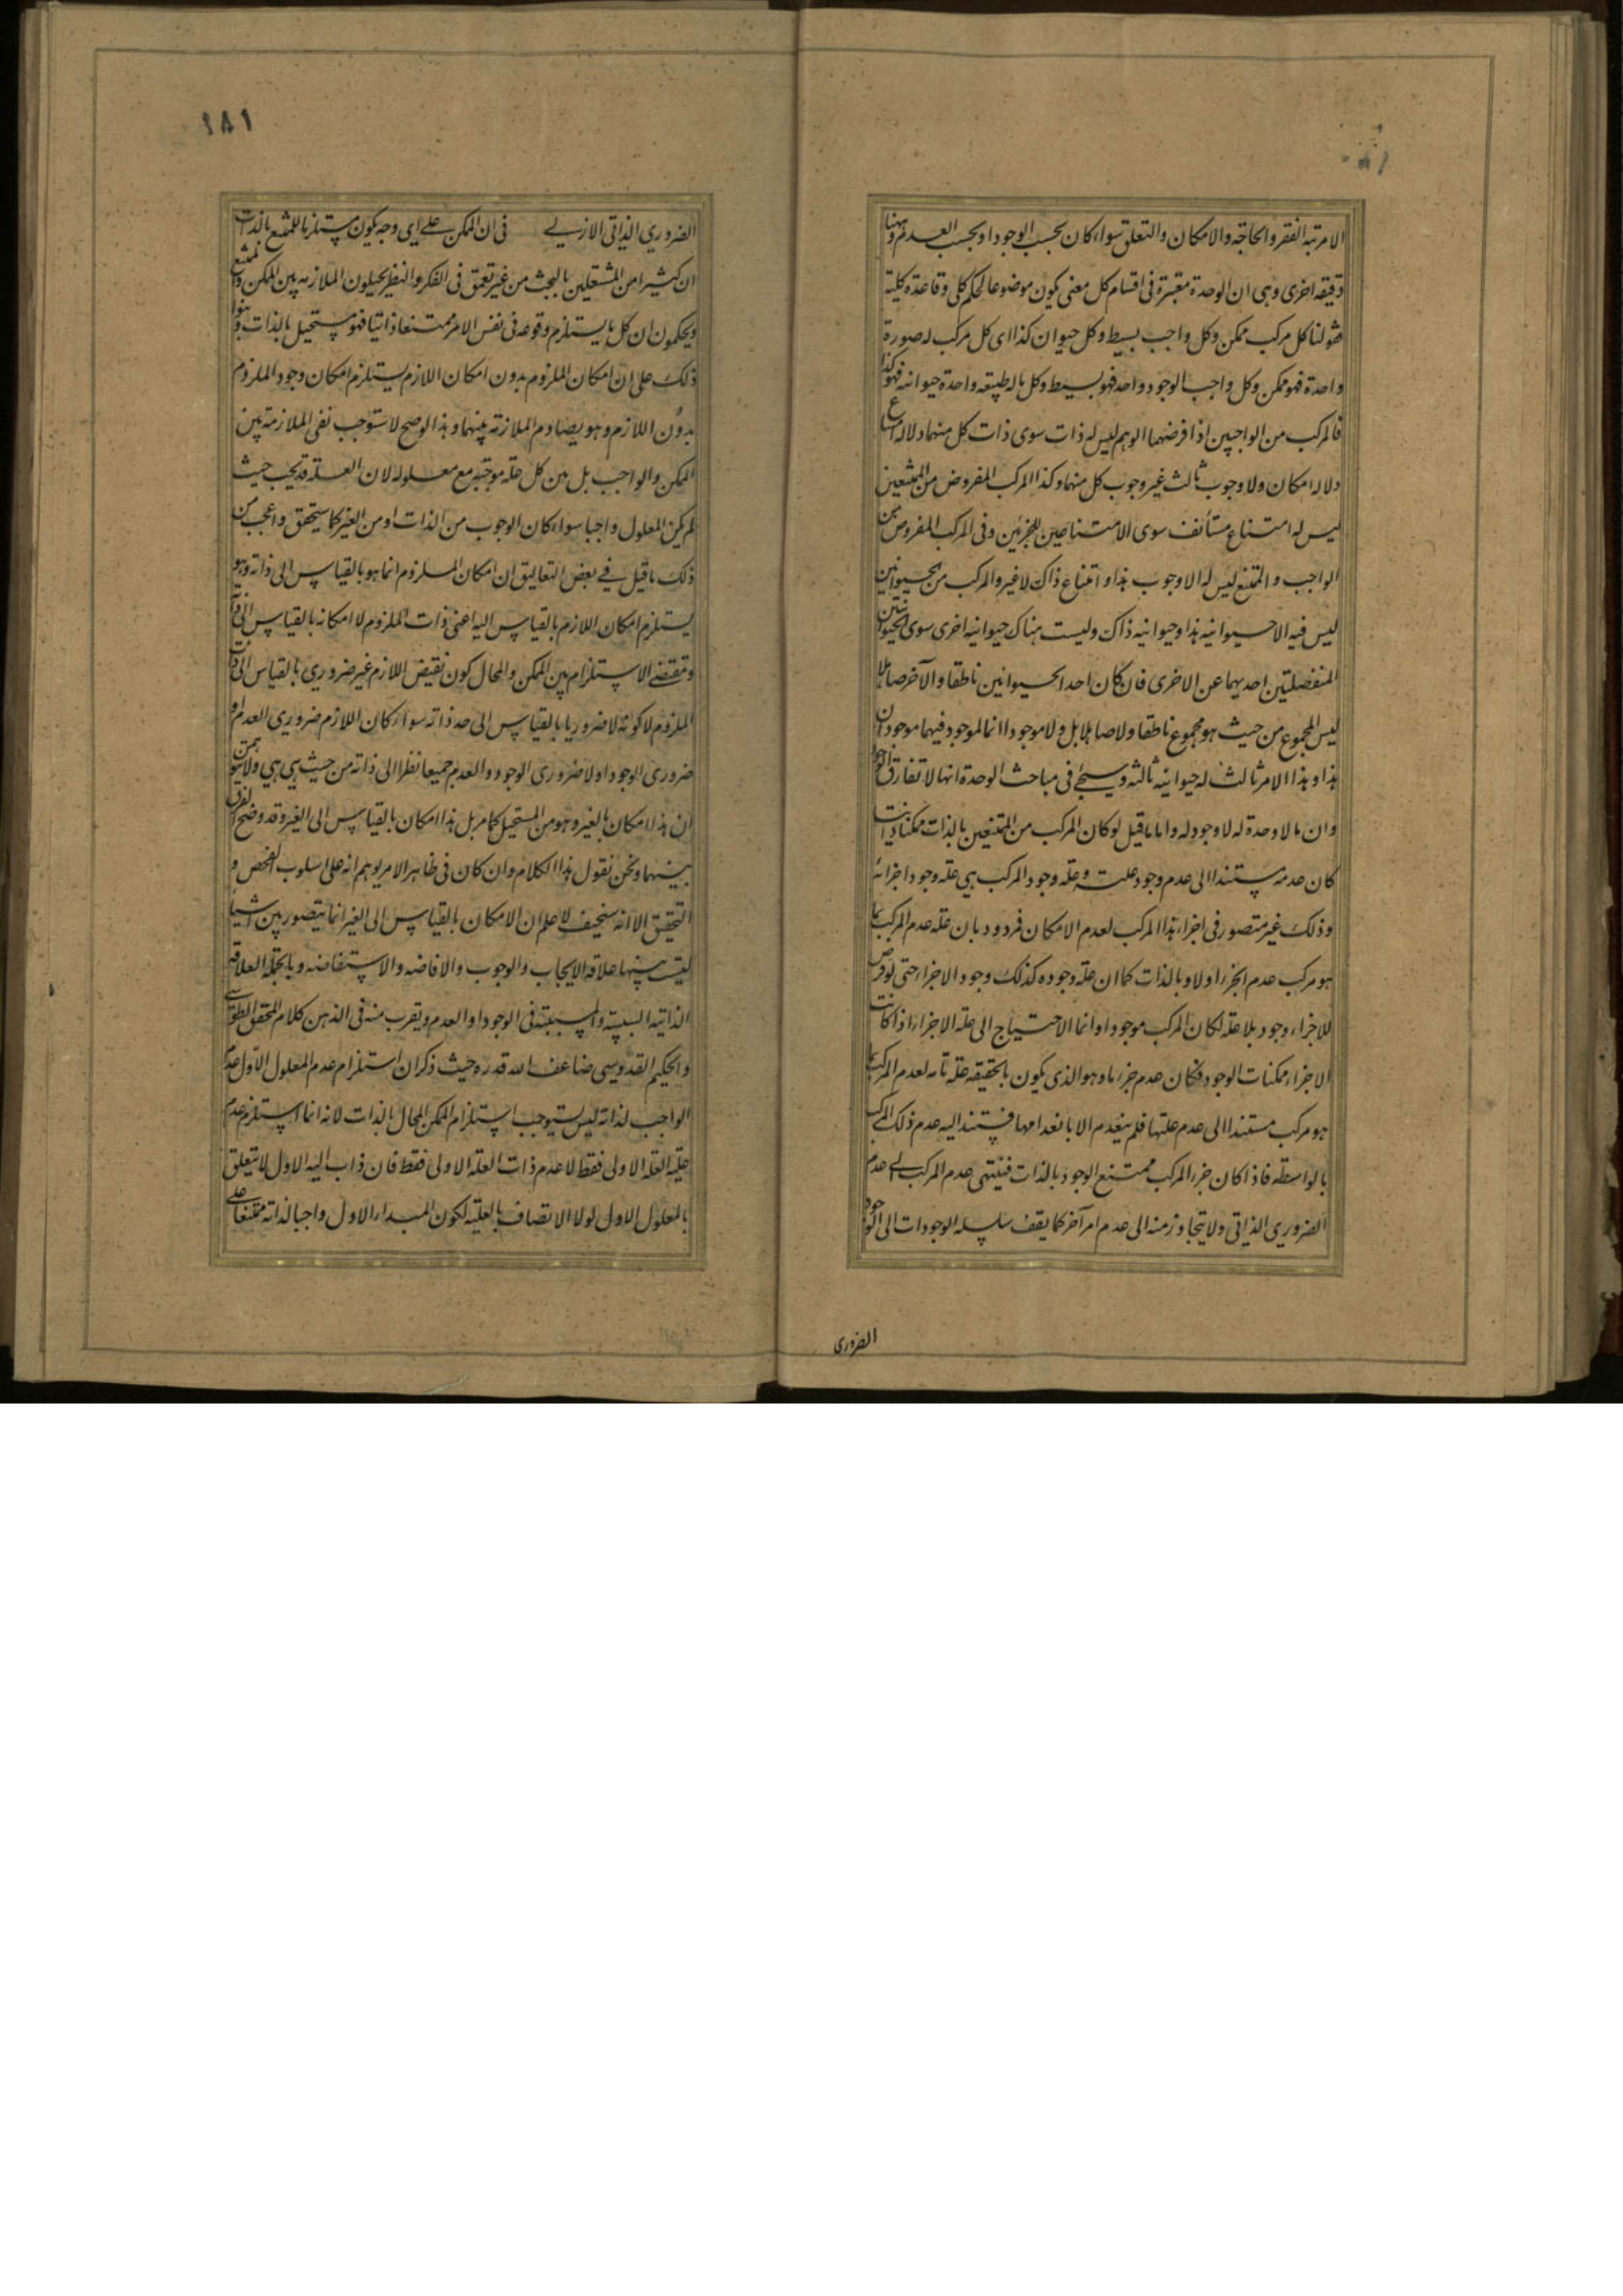 الا مرتبة الفقر والحاجة والامكان والتعلق سواء كان بحسب الوجود او بحسب العدم وههنا
دقيقة اخرى وهى ان الوحدة معتبرة فى اقسام كل معنى يكون موضوعا لحكم كلى وقاعدة كلية
فقولنا كل مركب ممكن وكل واجب بسيط وكل حيوان كذا اى كل مركب له صورة
واحدة فهو ممكن وكل واجب الوجود واحد فهو بسيط وكل ما له طبيعة واحدة حيوانية فهو كذا
فالمركب من الواجبين اذا فرضهما الوهم ليس له ذات سوى ذات كل منهما ولا له امتناع
ولا له امكان ولا وجوب ثالث غير وجوب كل منهما وكذا المركب المفروض من الممتنعين
ليس له امتناع مستأنف سوى الامتناعين للجزئين وفى المركب المفروض من
الواجب والممتنع ليس له الا وجوب هذا وامتناع ذاك لا غير والمركب من الحيوانين
ليس فيه الا حيوانية هذا وحيوانية ذاك وليست هناك حيوانية اخرى سوى الحيوانيتين
المنفصلتين احديهما عن الاخرى فان كان احد الحيوانين ناطقا والآخر صاهلا
ليس المجموع من حيث هو مجموع ناطقا ولا صاهلا بل ولا موجودا انما الموجود فيهما موجودان
هذا وهذا لا امر ثالث له حيوانية ثالثة وسيجئ فى مباحث الوحدة انها لا تفارق الوجود
وان ما لا وحدة له لا وجود له واما ما قيل لو كان المركب من الممتنعين بالذات ممكنا ذاتيا
كان عدمه مستندا الى عدم وجود علته وعلة وجود المركب هى علة وجود اجزائه
وذلك غير متصور فى اجزاء هذا المركب لعدم الامكان فمردود بان علة عدم المركب بما
هو مركب عدم الجزء اولا وبالذات كما ان علة وجوده كذلك وجود الاجزاء حتى لو فرض
للاجزاء وجود بلا علة لكان المركب موجودا وانما الاحتياج الى علة الاجزاء اذا كانت
الاجزاء ممكنات الوجود فكان عدم جزء ما وهو الذى يكون بالحقيقة علة تامة لعدم المركب بما
هو مركب مستندا الى عدم علتها فلم ينعدم الا بانعدامها فيستند اليه عدم ذلك المركب
بالواسطة فاذا كان جزء المركب ممتنع الوجود بالذات فينتهى عدم المركب الى عدم
الضرورى الذاتى ولا يتجاوز منه الى عدم امر آخر كما يقف سلسلة الوجودات الى الوجود
الضرورى
١٨١
الضرورى الذاتى الازلى فى ان الممكن على اى وجه يكون مستلزما للممتنع بالذات
ان كثيرا من المشتغلين بالبحث من غير تعمق فى الفكر والنظر يحيلون الملازمة بين الممكن والممتنع
ويحكمون ان كل ما يستلزم وقوعه فى نفس الامر ممتنعا ذاتيا فهو مستحيل بالذات وبنوا
ذلك على ان امكان الملزوم بدون امكان اللازم يستلزم امكان وجود الملزوم
بدون اللازم وهو يصادم الملازمة بينهما وهذا لو صح لاستوجب نفى الملازمة بين
الممكن والواجب بل بين كل علة موجبة مع معلوله لان العلة قد يجب حيث
لم يكن المعلول واجبا سواء كان الوجوب من الذات او من الغير كما ستحقق واعجب من
ذلك ما قيل فى بعض التعاليق ان امكان الملزوم انما هو بالقياس الى ذاته وهو
يستلزم امكان اللازم بالقياس اليه اعنى ذات الملزوم لا امكانه بالقياس الى ذاته
ومقتضى الاستلزام بين الممكن والمحال كون نقيض اللازم غير ضرورى بالقياس الى ذات
الملزوم لا كونه لا ضروريا بالقياس الى حد ذاته سواء كان اللازم ضرورى العدم او
ضرورى الوجود او لا ضرورى الوجود والعدم جميعا نظرا الى ذاته من حيث هى هى ولا يتوهمن
ان هذا امكان بالغير وهو من المستحيل كما مر بل هذا امكان بالقياس الى الغير وقد وضح الفرق
بينهما ونحن نقول هذا الكلام وان كان فى ظاهر الامر يوهم انه على اسلوب الفحص و
التحقيق الا انه سخيف لا علم ان الامكان بالقياس الى الغير انما يتصور بين اشياء
ليست بينها علاقة الايجاب والوجوب والافاضة والاستفاضة وبالجملة العلاقة
الذاتية السببية والمسببية فى الوجود او العدم ويقرب منه فى الذهن كلام المحقق الطوسى
والحكيم القدوسى ضاعف الله قدره حيث ذكر ان استلزام عدم المعلول الاول عدم
الواجب لذاته ليس يستوجب استلزام الممكن المحال بالذات لانه انما استلزم عدم
علية العلة الاولى فقط لا عدم ذات العلة الاولى فقط فان ذاب اليه الاول لا تتعلق
بالمعلول الاول لولا الاتصاف بالعلية لكون المبداء الاول واجبا لذاته ممتنعا على